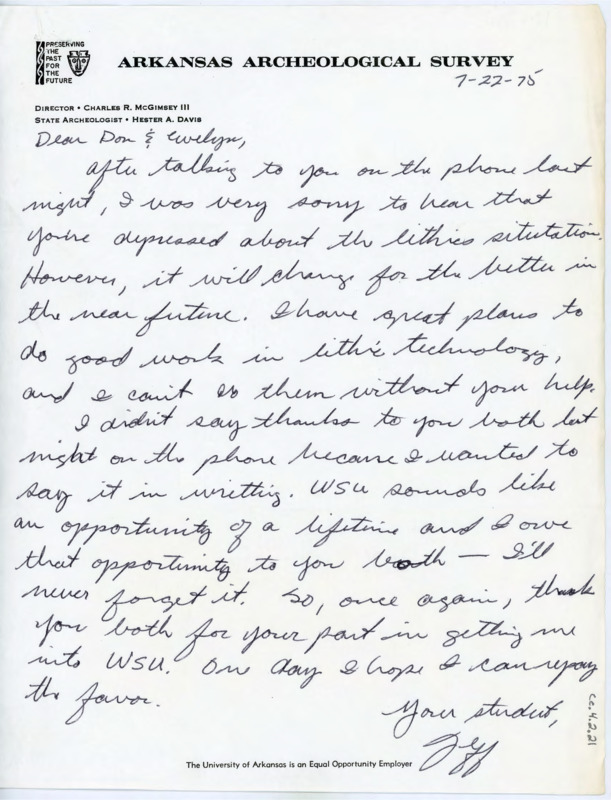 PRESERVING
THE
PAST
FOR
THE
FUTURE
ARKANSAS ARCHEOLOGICAL SURVEY
7-22-75
DIRECTOR • CHARLES R. MCGIMSEY III
STATE ARCHEOLOGIST • HESTER A. DAVIS
Dear Don & Evelyn,
After talking to you on the phone last
night, I was very sorry to hear that
you're depressed about the lithics situtation.
However, it will change for the better in
the near future. I have great plans to
do good work in lithic technology,
and I can't do them without your help.
I didn't say thanks to you both last
night on the phone because I wanted to
say it in writting. WSU sounds like
an opportunity of a lifetime and I owe
that opportunity to you both — I'll
never forget it. So, once again, thank
you both for your part in getting me
into WSU. One day I hope I can repay
the favor.
Your student,
Jeff
cc.4.2.21
The University of Arkansas is an Equal Opportunity Employer